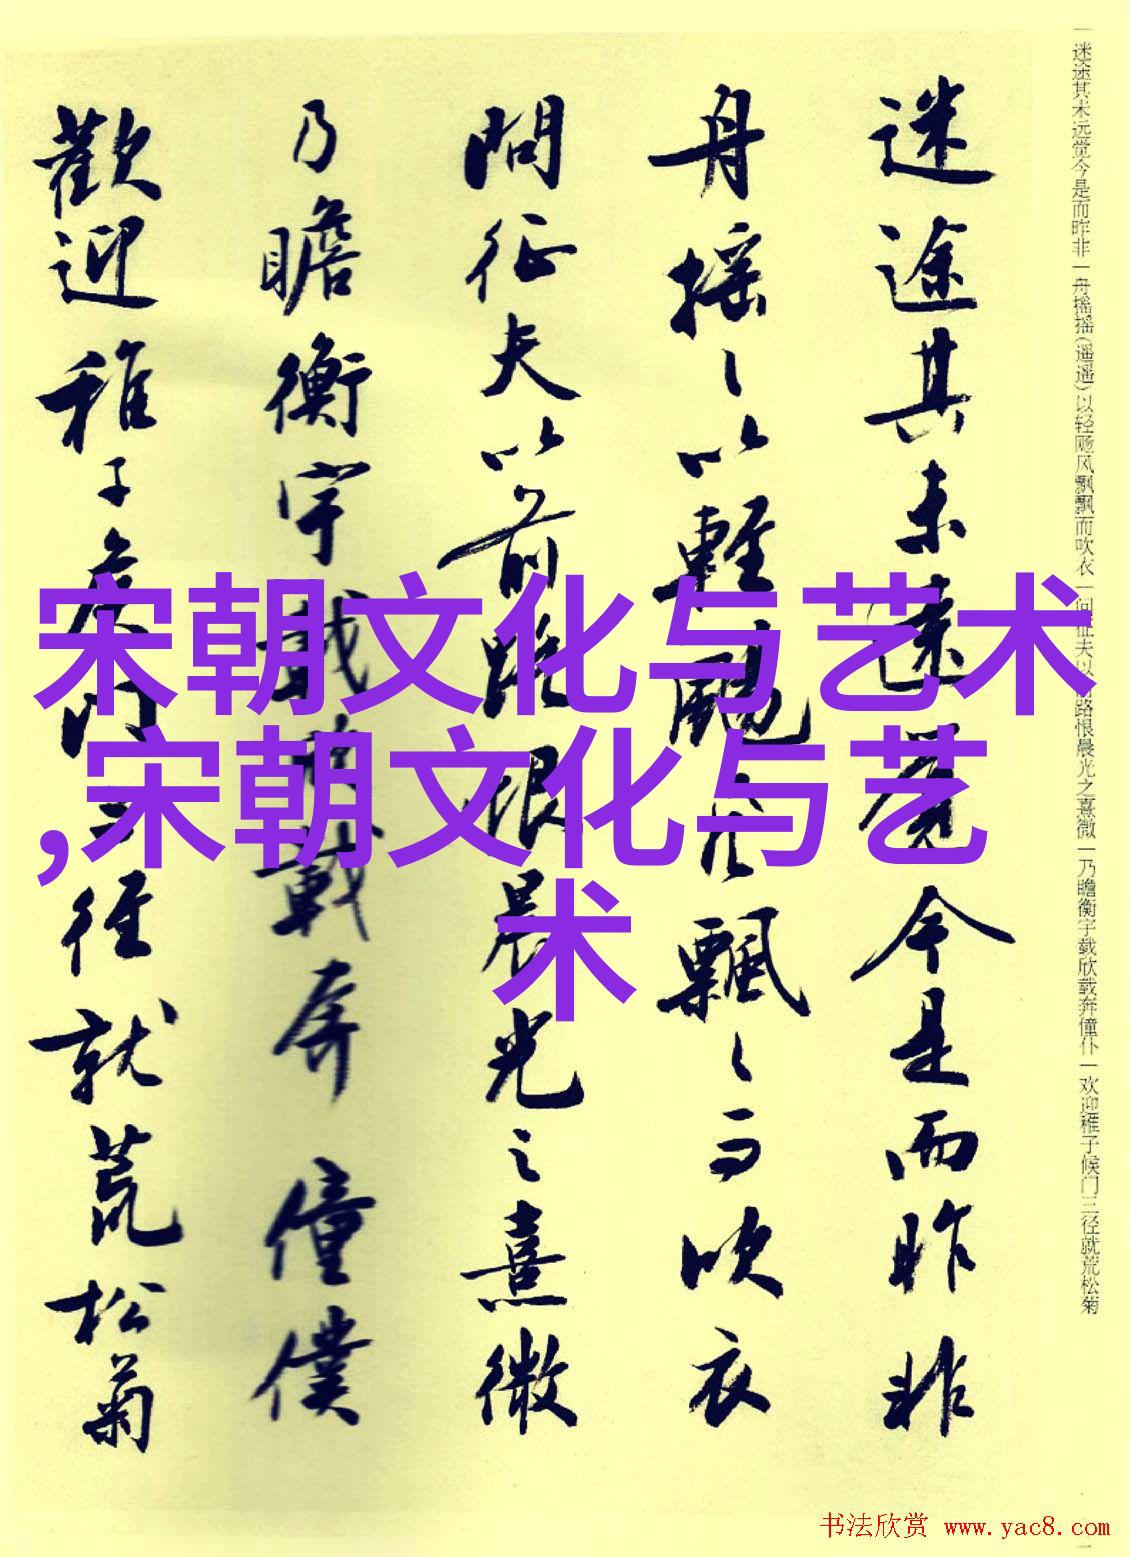 迷途其未遠覺今是而昨非
舟搖〻以輕颺風飄〻而吹衣
問征夫以前路恨晨光之熹微
乃瞻衡宇載欣載奔僮僕
歡迎稚子候門三徑就荒松菊
一迷途其未远觉今是而昨非一舟摇摇(遥遥)以轻飏风飘飘而吹衣一问征夫以前路恨晨光之熹微一乃瞻衡宇载欣载奔僮仆一欢迎稚子候门三径就荒松菊
宋朝文化与艺术
,宋朝文化与艺
术
书法欣赏 www.yac8.com